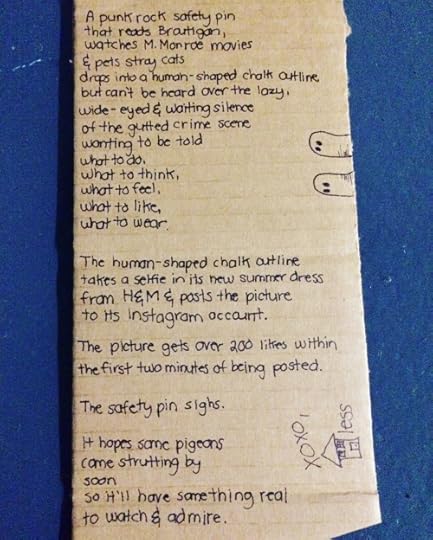 A punk rock safety pin
that reads Brautigan,
watches M. Monroe movies
& pets stray cats
drops into a human-shaped chalk outline,
but can't be heard over the lazy,
wide-eyed & waiting silence
of the gutted crime scene
wanting to be told
what to do,
what to think,
what to feel,
what to like,
what to wear.
The human-shaped chalk outline
takes a selfie in its new summer dress
from H&M & posts the picture
to its Instagram account.
The picture gets over 200 likes within
the first two minutes of being posted.
The safety pin sighs.
It hopes some pigeons
come strutting by
soon
so it'll have something real
to watch & admire.
XOXO,
less